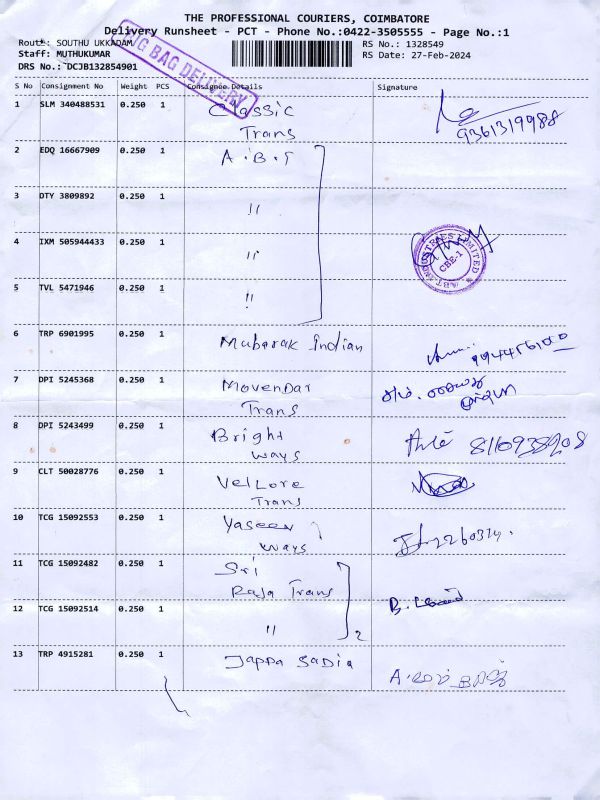 THE PROFESSIONAL COURIERS, COIMBATORE
Delivery Runsheet - PCT - Phone No.:0422-3505555 - Page No.:1
Route: SOUTHU UKKADAM
RS No.: 1328549
Staff: MUTHUKUMAR
RS Date: 27-Feb-2024
DRS No.: DCJB132854901
BIG BAG DELIVERY
S No Consignment No Weight PCS Consignee Details Signature
1 SLM 340488531 0.250 1 Classic
Trans
9361319988
2 EDQ 16667909 0.250 1 A.B.T
3 DTY 3809892 0.250 1 "
4 IXM 505944433 0.250 1 "
CBE-1
5 TVL 5471946 0.250 1 "
6 TRP 6901995 0.250 1 Mubarak Indian
7 DPI 5245368 0.250 1 Movendar
Trans
8 DPI 5243499 0.250 1 Bright
ways
8110938908
9 CLT 50028776 0.250 1 Vellore
Trans
10 TCG 15092553 0.250 1 Yaseen
ways
11 TCG 15092482 0.250 1 Sri
Raja Trans
12 TCG 15092514 0.250 1 "
2
13 TRP 4915281 0.250 1 Jappa Sadia